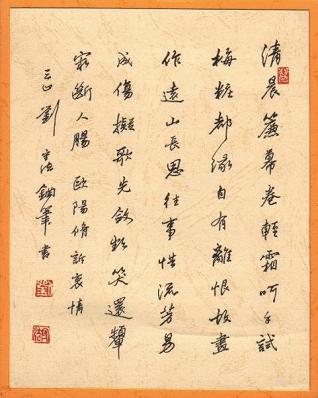 清晨簾幕卷輕霜呵手試
梅粧都緣自有離恨故畫
作遠山長思往事惜流芳易
成傷擬歌先斂欲笑還顰
最斷人腸 歐陽修訴衷情
劉 鋼筆書